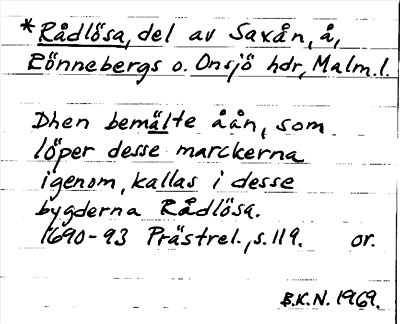 *Rådlösa, del av Saxån, å,
Rönnebergs o. Onsjö hdr, Malm.l.
Dhen bemälte åån, som
löper desse marckerna
igenom, kallas i desse
bygderna Rådlösa.
1690-93 Prästrel., s.119. or.
B.K.N. 1969.